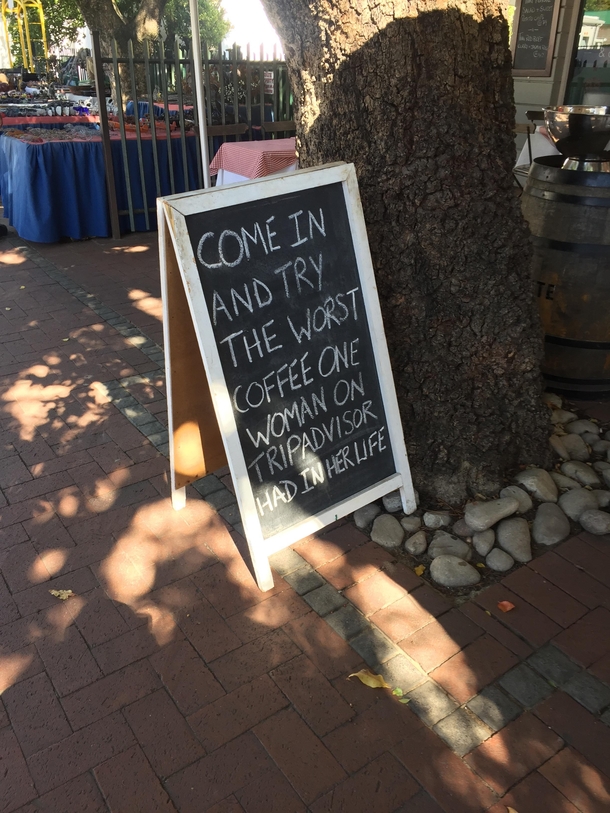 COME IN
AND TRY
THE WORST
COFFEE ONE
WOMAN ON
TRIPADVISOR
HAD IN HER LIFE
TE